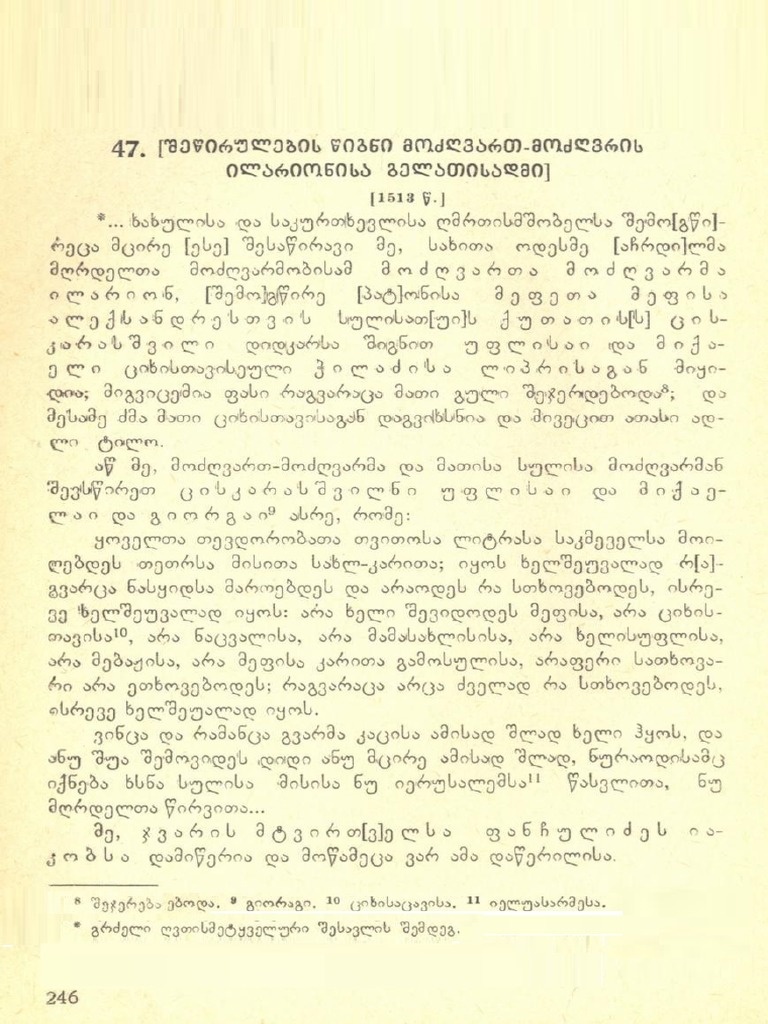 47. [შეწირულების წიგნი მოძღვართ-მოძღვრის
ილარიონისა გელათისადმი]
[1513 წ.]
*... ხახულისა და საკურთხევლისა ღმრთისმშობელსა შემო[გწი]-
რეცა მცირე [ესე] შესაწირავი მე, სახითა ოდესმე [აჩრდი]ლმა
მღრდელთა მოძღვარმობისამ მოძღვართა მოძღვარმა
ილარიონ, [შემო]გწირე [პატ]ონისა მეფეთა მეფისა
ალექსანდრესთვის სულისათ[უი]ს ქუთათის[ს] ცის-
კარასშვილი დიდკარსა შიგნით უფლისაი და მიქა-
ელი ციხისთავისეული ჭილაძისა ლიპრისაგან მიყი-
დია; მიგვიცემია ფასი რაგვარაცა მათი გული შეჯერდებოდა⁸; და
მესამე ძმა მათი ციხისთავისაგან დაგვიხსნია და მივეცით ათასი ად-
ლი ტილო.
აწ მე, მოძღვართ-მოძღვარმა და მათისა სულისა მოძღვარმან
შევსწირეთ ცისკარასშვილნი უფლისაი და მიქაე-
ლაი და გიორგაი⁹ ასრე, რომე:
ყოველთა თევდორობათა თვითოსა ლიტრასა საკმეველსა მოი-
ღებდეს თეთრსა მისითა სახლ-კარითა; იყოს ხელშეუვალად რ[ა]-
გვარცა ნასყიდსა მართებდეს და არაოდეს რა სთხოვებოდეს, ისრე-
ვე ხელშეუვალად იყოს: არა ხელი შევიდოდეს მეფისა, არა ციხის-
თავისა¹⁰, არა ნაცვალისა, არა მამასახლისისა, არა ხელისუფლისა,
არა მებაჟისა, არა მეფისა კარითა გამოსულისა, არაფერი სათხოვა-
რი არა ეთხოვებოდეს; რაგვარაცა არცა ძველად რა სთხოვებოდეს,
ისრევე ხელშეუალად იყოს.
ვინცა და რამანცა გვარმა კაცისა ამისად შლად ხელი ჰყოს, და
ანუ შუა შემოვიდეს დიდი ანუ მცირე ამისად შლად, ნურაოდისამც
იქნება ხსნა სულისა მისისა ნუ იერუსალემსა¹¹ წასვლითა, ნუ
მღრდელთა წირვითა...
მე, ჯვარის მტვირთ[ვ]ელსა ფანჩულიძეს ია-
კობსა დამიწერია და მოწამეცა ვარ ამა დაწერილისა.
⁸ შეჯერება ებოდა. ⁹ გიორაგი. ¹⁰ ციხისაცავისა. ¹¹ იელუასარმესა.
* გრძელი ღვთისმეტყველური შესავლის შემდეგ.
246